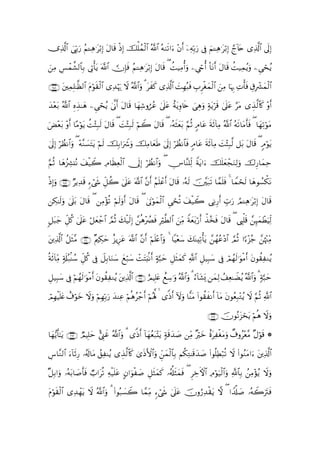 إِلَى ٱلَّذِى حَآجَّ إِبْرَٰهِـۧمَ فِى رَبِّهِۦٓ أَنْ ءَاتَىٰهُ ٱللَّهُ ٱلْمُلْكَ إِذْ قَالَ إِبْرَٰهِـۧمُ رَبِّىَ ٱلَّذِى
يُحْىِۦ وَيُمِيتُ قَالَ أَنَا۠ أُحْىِۦ وَأُمِيتُ ۖ قَالَ إِبْرَٰهِـۧمُ فَإِنَّ ٱللَّهَ يَأْتِى بِٱلشَّمْسِ مِنَ
ٱلْمَشْرِقِ فَأْتِ بِهَا مِنَ ٱلْمَغْرِبِ فَبُهِتَ ٱلَّذِى كَفَرَ ۗ وَٱللَّهُ لَا يَهْدِى ٱلْقَوْمَ ٱلظَّٰلِمِينَ ﴿٢٥٨﴾
أَوْ كَٱلَّذِى مَرَّ عَلَىٰ قَرْيَةٍ وَهِىَ خَاوِيَةٌ عَلَىٰ عُرُوشِهَا قَالَ أَنَّىٰ يُحْىِۦ هَٰذِهِ ٱللَّهُ بَعْدَ
مَوْتِهَا ۖ فَأَمَاتَهُ ٱللَّهُ مِا۟ئَةَ عَامٍ ثُمَّ بَعَثَهُۥ ۖ قَالَ كَمْ لَبِثْتَ ۖ قَالَ لَبِثْتُ يَوْمًا أَوْ بَعْضَ
يَوْمٍ ۖ قَالَ بَل لَّبِثْتَ مِا۟ئَةَ عَامٍ فَٱنظُرْ إِلَىٰ طَعَامِكَ وَشَرَابِكَ لَمْ يَتَسَنَّهْ ۖ وَٱنظُرْ إِلَىٰ
حِمَارِكَ وَلِنَجْعَلَكَ ءَايَةً لِّلنَّاسِ ۖ وَٱنظُرْ إِلَى ٱلْعِظَامِ كَيْفَ نُنشِزُهَا ثُمَّ
نَكْسُوهَا لَحْمًا ۚ فَلَمَّا تَبَيَّنَ لَهُۥ قَالَ أَعْلَمُ أَنَّ ٱللَّهَ عَلَىٰ كُلِّ شَىْءٍ قَدِيرٌ ﴿٢٥٩﴾ وَإِذْ
قَالَ إِبْرَٰهِـۧمُ رَبِّ أَرِنِى كَيْفَ تُحْىِ ٱلْمَوْتَىٰ ۖ قَالَ أَوَلَمْ تُؤْمِن ۖ قَالَ بَلَىٰ وَلَٰكِن
لِّيَطْمَئِنَّ قَلْبِى ۖ قَالَ فَخُذْ أَرْبَعَةً مِّنَ ٱلطَّيْرِ فَصُرْهُنَّ إِلَيْكَ ثُمَّ ٱجْعَلْ عَلَىٰ كُلِّ جَبَلٍ
مِّنْهُنَّ جُزْءًا ثُمَّ ٱدْعُهُنَّ يَأْتِينَكَ سَعْيًا ۚ وَٱعْلَمْ أَنَّ ٱللَّهَ عَزِيزٌ حَكِيمٌ ﴿٢٦٠﴾ مَّثَلُ ٱلَّذِينَ
يُنفِقُونَ أَمْوَٰلَهُمْ فِى سَبِيلِ ٱللَّهِ كَمَثَلِ حَبَّةٍ أَنۢبَتَتْ سَبْعَ سَنَابِلَ فِى كُلِّ سُنۢبُلَةٍ مِّا۟ئَةُ
حَبَّةٍ ۗ وَٱللَّهُ يُضَٰعِفُ لِمَن يَشَآءُ ۗ وَٱللَّهُ وَٰسِعٌ عَلِيمٌ ﴿٢٦١﴾ ٱلَّذِينَ يُنفِقُونَ أَمْوَٰلَهُمْ فِى سَبِيلِ
ٱللَّهِ ثُمَّ لَا يُتْبِعُونَ مَآ أَنفَقُوا۟ مَنًّا وَلَآ أَذًى ۙ لَّهُمْ أَجْرُهُمْ عِندَ رَبِّهِمْ وَلَا خَوْفٌ عَلَيْهِمْ
وَلَا هُمْ يَحْزَنُونَ ﴿٢٦٢﴾
۞ قَوْلٌ مَّعْرُوفٌ وَمَغْفِرَةٌ خَيْرٌ مِّن صَدَقَةٍ يَتْبَعُهَآ أَذًى ۗ وَٱللَّهُ غَنِىٌّ حَلِيمٌ ﴿٢٦٣﴾ يَٰٓأَيُّهَا
ٱلَّذِينَ ءَامَنُوا۟ لَا تُبْطِلُوا۟ صَدَقَٰتِكُم بِٱلْمَنِّ وَٱلْأَذَىٰ كَٱلَّذِى يُنفِقُ مَالَهُۥ رِئَآءَ ٱلنَّاسِ
وَلَا يُؤْمِنُ بِٱللَّهِ وَٱلْيَوْمِ ٱلْـَٔاخِرِ ۖ فَمَثَلُهُۥ كَمَثَلِ صَفْوَانٍ عَلَيْهِ تُرَابٌ فَأَصَابَهُۥ وَابِلٌ
فَتَرَكَهُۥ صَلْدًا ۖ لَّا يَقْدِرُونَ عَلَىٰ شَىْءٍ مِّمَّا كَسَبُوا۟ ۗ وَٱللَّهُ لَا يَهْدِى ٱلْقَوْمَ